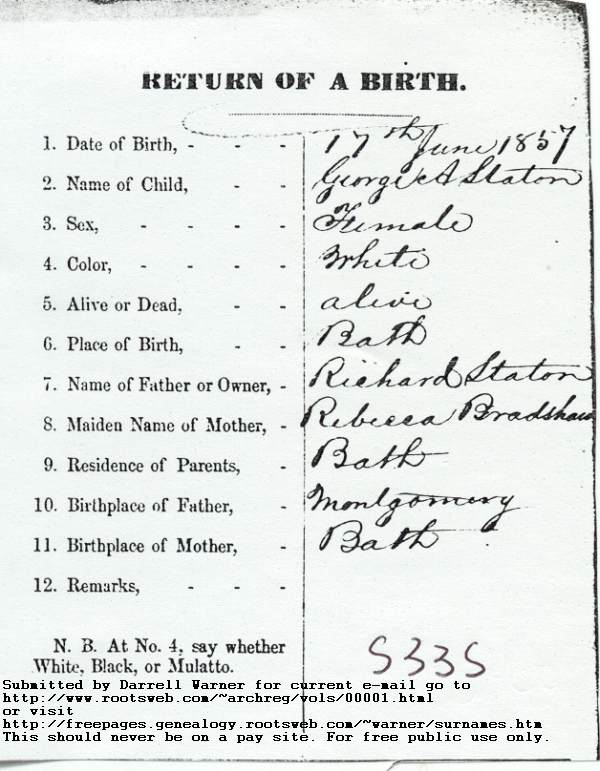 RETURN OF A BIRTH.
1. Date of Birth, - - - 17th June 1857
2. Name of Child, - - George A Staton
3. Sex, - - - - Female
4. Color, - - - - White
5. Alive or Dead, - - alive
6. Place of Birth, - - Bath
7. Name of Father or Owner, - Richard Staton
8. Maiden Name of Mother, - Rebecca Bradshaw
9. Residence of Parents, - Bath
10. Birthplace of Father, - Montgomery
11. Birthplace of Mother, - Bath
12. Remarks, - - -
N. B. At No. 4, say whether
White, Black, or Mulatto.
5335
Submitted by Darrell Warner for current e-mail go to
http://www.rootsweb.com/~archreg/vols/00001.html
or visit
http://freepages.genealogy.rootsweb.com/~warner/surnames.htm
This should never be on a pay site. For free public use only.